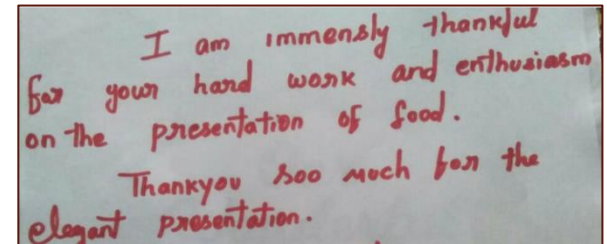 I am immensly thankful
for your hard work and enthusiasm
on the presentation of food.
Thankyou soo much for the
elegant presentation.